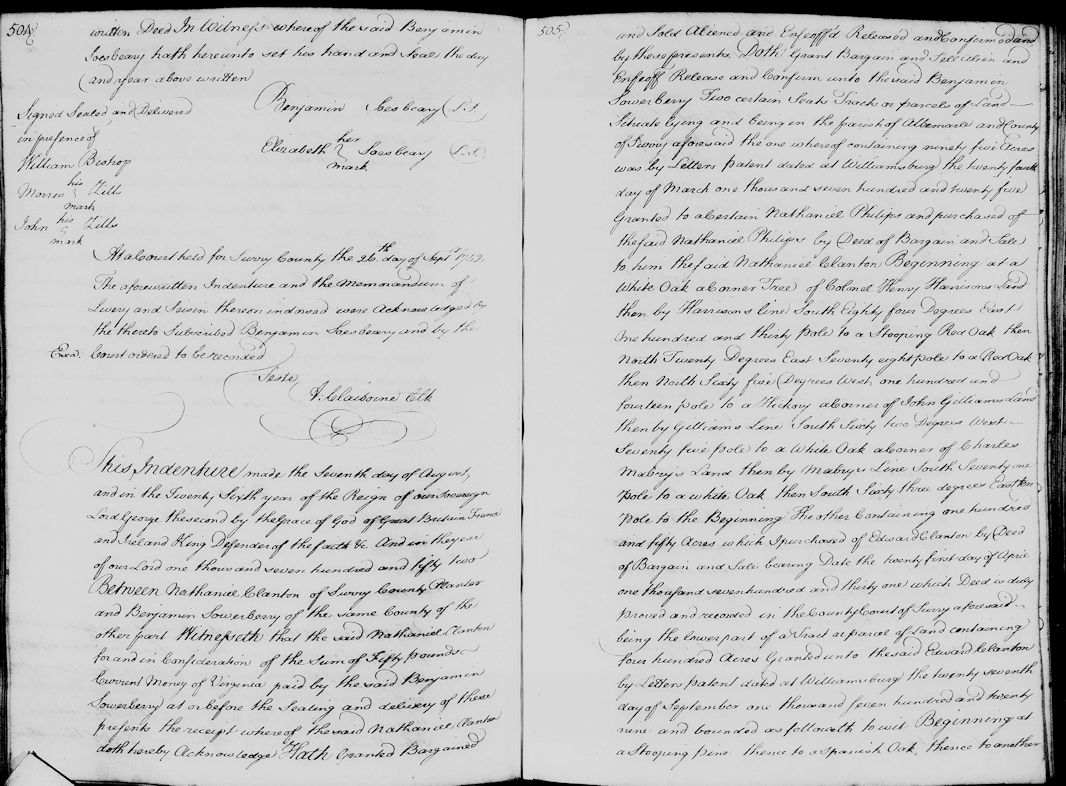 504
written Deed In Witness whereof the said Benjamin
Soesbeary hath hereunto set his hand and Seal the day
and year above written
Signed Sealed and Delivered
in presence of
William Bishop
his
Morris Zills
mark
his
John Zills
mark
Benjamin Soesbeary (L.S.)
her
Elizabeth Soesbeary (L.S.)
mark
At a Court held for Surry County the 26th day of Septr 1752
The aforewritten Indenture and the Memorandum of
Livery and Seisin thereon indorsed were Acknowledged by
the thereto Subscribed Benjamin Soesbeary and by the
Exd. Court ordered to be recorded
Teste
Claiborne Clk
This Indenture made the Seventh day of August
and in the Twenty Sixth year of the Reign of our Sovereign
Lord George the second by the Grace of God of Great Britain France
and Ireland King Defender of the faith &c And in the year
of our Lord one thousand seven hundred and fifty two
Between Nathaniel Clanton of Surry County Planter
and Benjamin Sowerberry of the same County of the
other part Witnesseth that the said Nathaniel Clanton
for and in Consideration of the Sum of Fifty pounds
Current Money of Virginia paid by the said Benjamin
Sowerberry at or before the Sealing and delivery of these
presents the receipt whereof the said Nathaniel Clanton
doth hereby Acknowledge Hath Granted Bargained
505
and Sold Aliened and Enfeoff'd Released and Confirm'd and
by these presents Doth Grant Bargain and Sell Alien and
Enfeoff Release and Confirm unto the said Benjamin
Sowerberry Two certain Seats Tracts or parcels of Land
Situate lying and being in the parish of Albemarle and County
of Surry aforesaid the one whereof containing ninety five Acres
was by Letters patent dated at Williamsburg the twenty fourth
day of March one thousand seven hundred and twenty five
Granted to a Certain Nathaniel Philips and purchased of
the said Nathaniel Philips by Deed of Bargain and Sale
to him the said Nathaniel Clanton Beginning at a
White Oak a Corner Tree of Colonel Henry Harrisons Land
then by Harrisons line South Eighty four Degrees East
One hundred and thirty Pole to a Stooping Red Oak then
North Twenty Degrees East Seventy eight pole to a Red Oak
then North Sixty five Degrees West one hundred and
fourteen pole to a Hickory a Corner of John Gilliams Land
then by Gilliams Line South Sixty two Degrees West
Seventy five pole to a White Oak a Corner of Charles
Mabrys Land then by Mabrys Line South Seventy one
pole to a white Oak then South Sixty three degrees East ten
Pole to the Beginning The other Containing one hundred
and fifty Acres which I purchased of Edward Clanton by Deed
of Bargain and Sale bearing Date the twenty first day of April
one thousand seven hundred and thirty one which Deed is duly
proved and recorded in the County Court of Surry aforesaid
being the lower part of a Tract or parcel of Land containing
four hundred Acres Granted unto the said Edward Clanton
by Letters patent dated at Williamsburg the twenty seventh
day of September one thousand seven hundred and twenty
nine and bounded as followeth to wit Beginning at
a Stooping pine thence to a Spanish Oak, thence to another